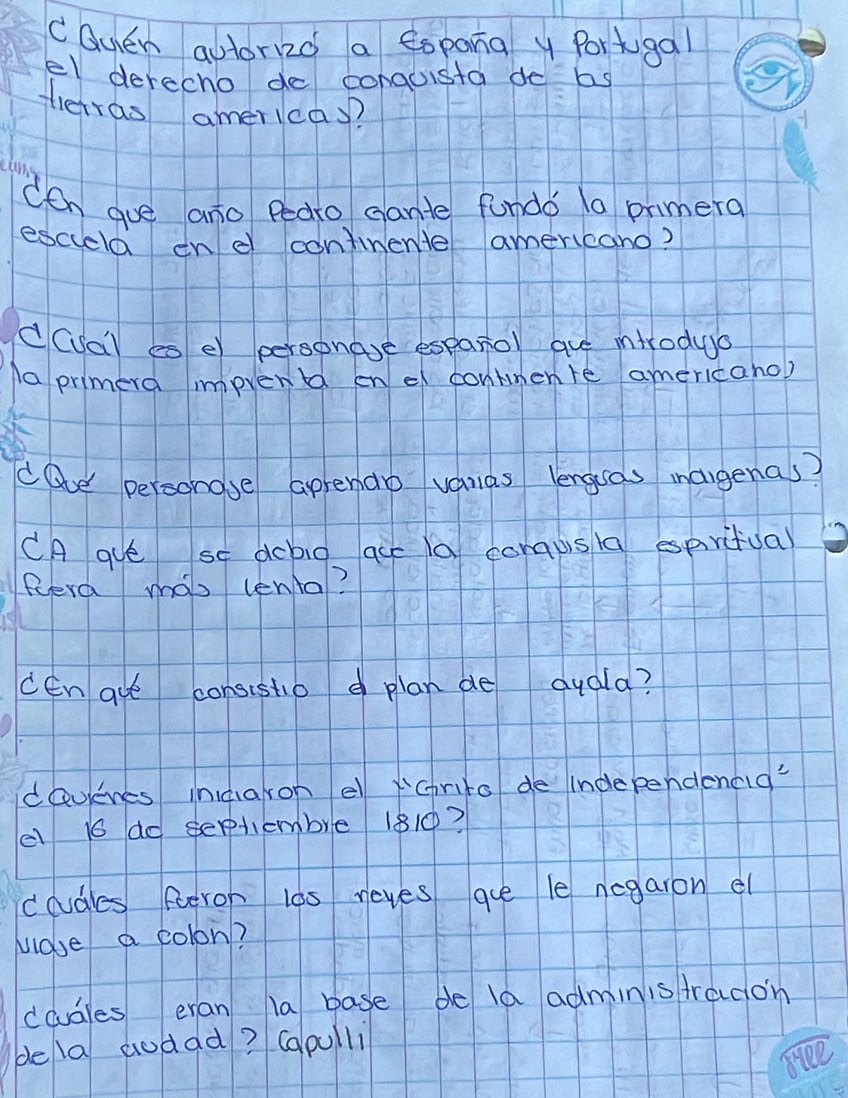 ¿Quién autorizó a España y Portugal
el derecho de conquista de las
tierras americas?
¿En que año Pedro Gante fundó la primera
escuela en el continente americano?
¿Cuál es el personaje español que introdujo
la primera imprenta en el continente americano?
¿Qué personaje aprendio varias lenguas indigenas?
¿A qué se debio que la conquista espiritual
fuera más lenta?
¿En qué consistio el plan de ayala?
¿Quiénes iniciaron el "Grito de Independencia"
el 16 de septiembre 1810?
¿Cuáles fueron los reyes que le negaron el
viaje a colon?
¿Cuáles eran la base de la administración
de la ciudad? Capulli
free